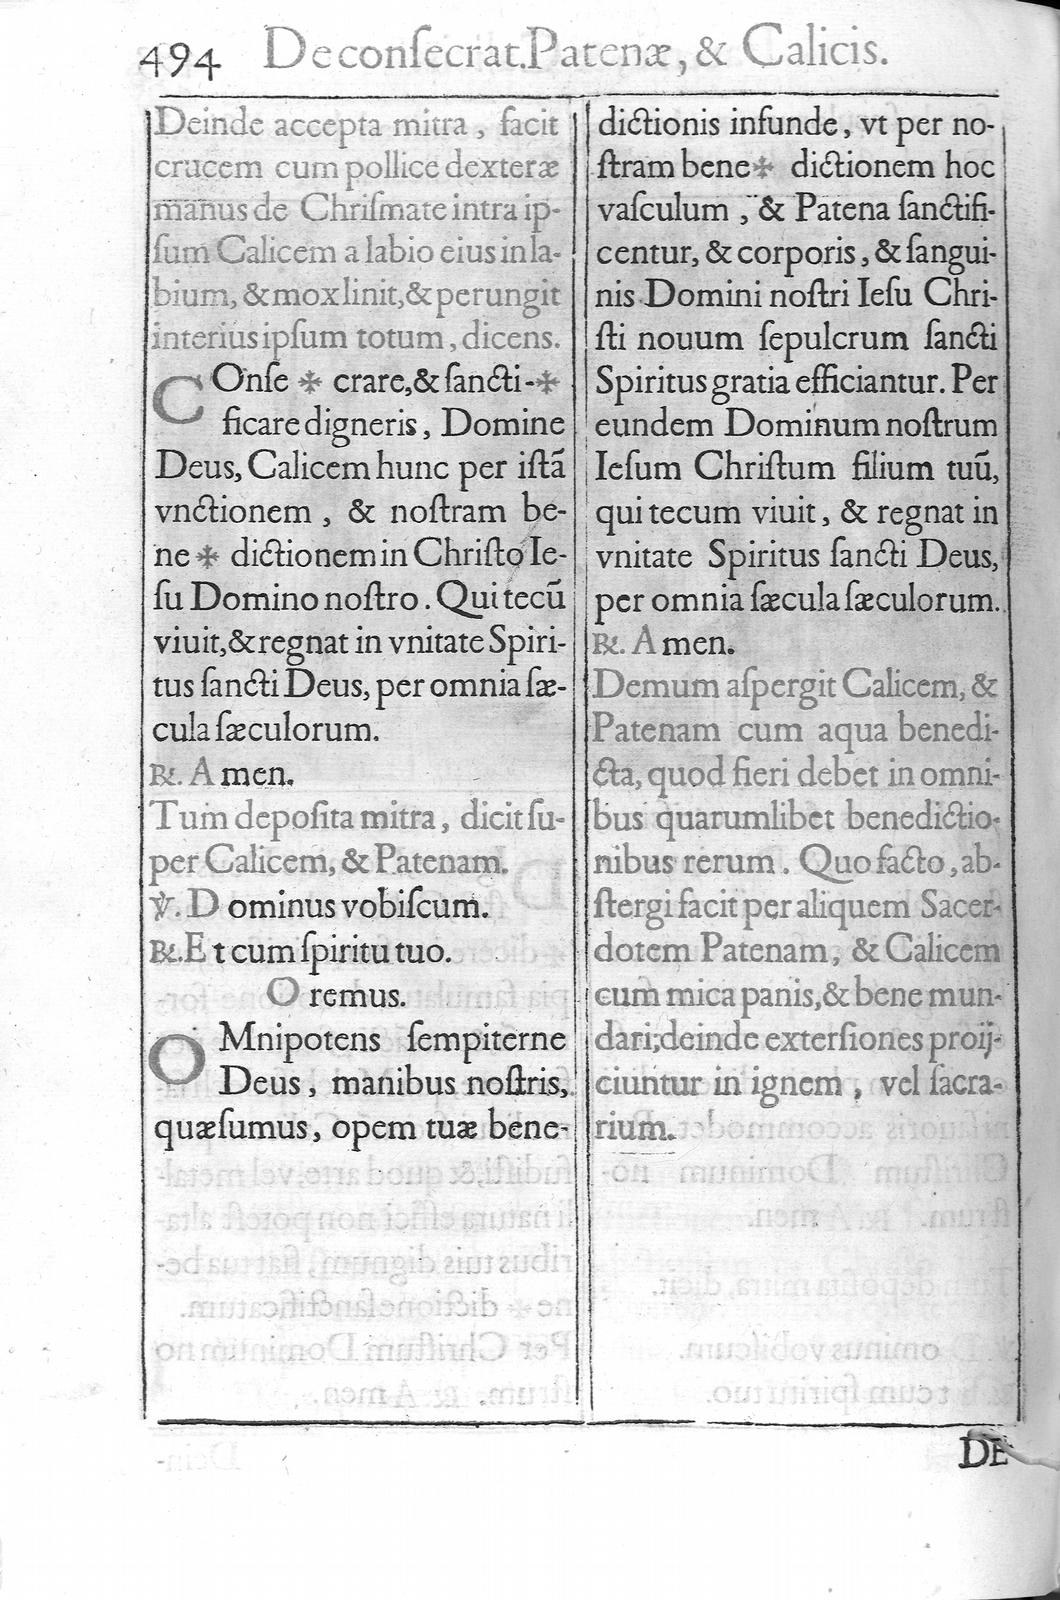 494 De conſecrat. Patenæ, & Calicis.
Deinde accepta mitra, facit
crucem cum pollice dexteræ
manus de Chriſmate intra ip-
ſum Calicem a labio eius in la-
bium, & mox linit, & perungit
interius ipſum totum, dicens.
COnſe ✠ crare, & ſancti- ✠
ficare digneris, Domine
Deus, Calicem hunc per iſtã
vnctionem, & noſtram be-
ne ✠ dictionem in Chriſto Ie-
ſu Domino noſtro. Qui tecũ
viuit, & regnat in vnitate Spiri-
tus ſancti Deus, per omnia ſæ-
cula ſæculorum.
℟. Amen.
Tum depoſita mitra, dicit ſu-
per Calicem, & Patenam.
℣. Dominus vobiſcum.
℟. Et cum ſpiritu tuo.
Oremus.
OMnipotens ſempiterne
Deus, manibus noſtris,
quæſumus, opem tuæ bene-
dictionis infunde, vt per no-
ſtram bene ✠ dictionem hoc
vaſculum, & Patena ſanctifi-
centur, & corporis, & ſangui-
nis Domini noſtri Ieſu Chri-
ſti nouum ſepulcrum ſancti
Spiritus gratia efficiantur. Per
eundem Dominum noſtrum
Ieſum Chriſtum filium tuũ,
qui tecum viuit, & regnat in
vnitate Spiritus ſancti Deus,
per omnia ſæcula ſæculorum.
℟. Amen.
Demum aſpergit Calicem, &
Patenam cum aqua benedi-
cta, quod fieri debet in omni-
bus quarumlibet benedictio-
nibus rerum. Quo facto, ab-
ſtergi facit per aliquem Sacer-
dotem Patenam, & Calicem
cum mica panis, & bene mun-
dari; deinde exterſiones proij-
ciuntur in ignem, vel ſacra-
rium.
DE